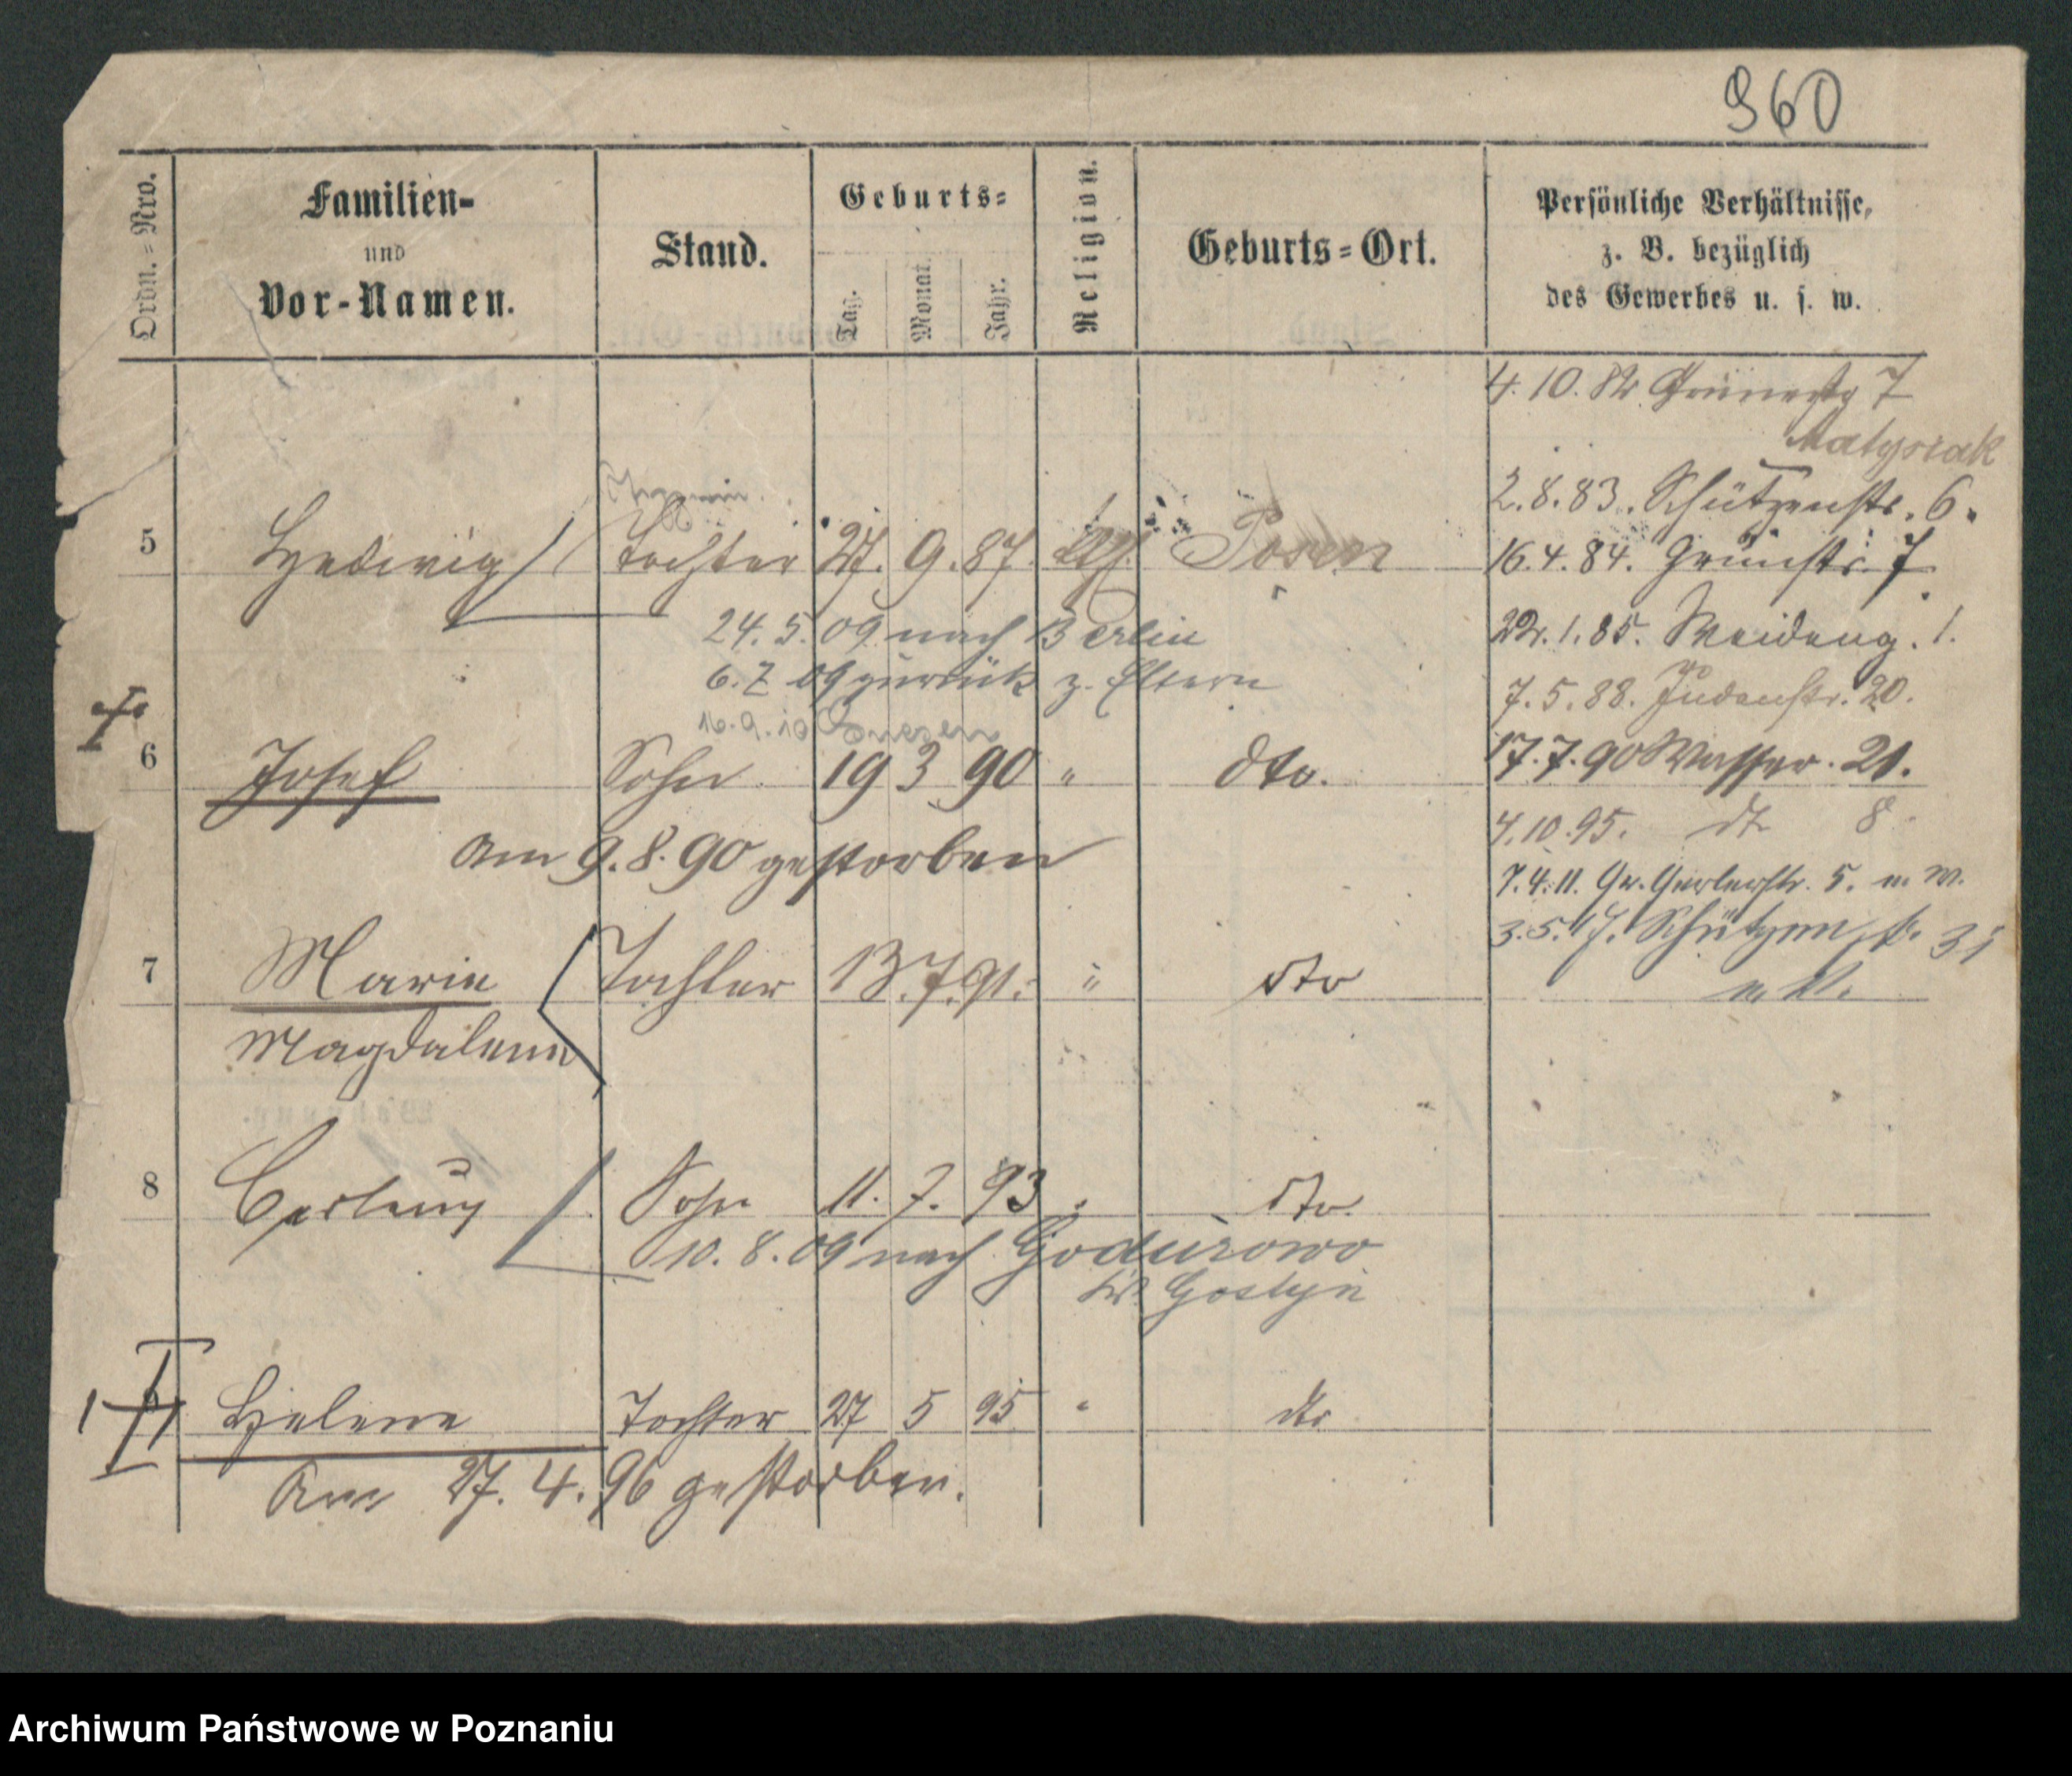 960
Ordn.=Nro.
Familien-
und
Vor-Namen.
Stand.
Geburts=
Tag.
Monat.
Jahr.
Religion.
Geburts=Ort.
Persönliche Verhältnisse,
z. B. bezüglich
des Gewerbes u. s. w.
4. 10. 82 Grünestr 7
Matysiak
2. 8. 83. Schützenstr. 6.
5 Hedwig Tochter 27. 9. 87. Posen
16. 4. 84. Grünstr. 7
24. 5. 09 nach Berlin
22. 1. 85. Weideng. 1.
6. 7. 09 zurück z. Eltern
7. 5. 88. Judenstr. 20.
16. 9. 10 Gnesen
6 Josef Sohn 19 3 90 " dto.
17. 7. 90 Wasser. 21.
4. 10. 95. dt 8
am 9. 8. 90 gestorben
7. 4. 11. Gr. Gerberstr. 5. n. W.
3. 5. 17. Schützenstr. 31
7 Marie Tochter 13. 7. 91. " dto
Magdalena
8 Sohn 11. 7. 93 " dto.
10. 8. 09 nach Godurowo
Kr. Gostyn
Helene Tochter 27 5 95 " dto
Am 27. 4. 96 gestorben.
Archiwum Państwowe w Poznaniu